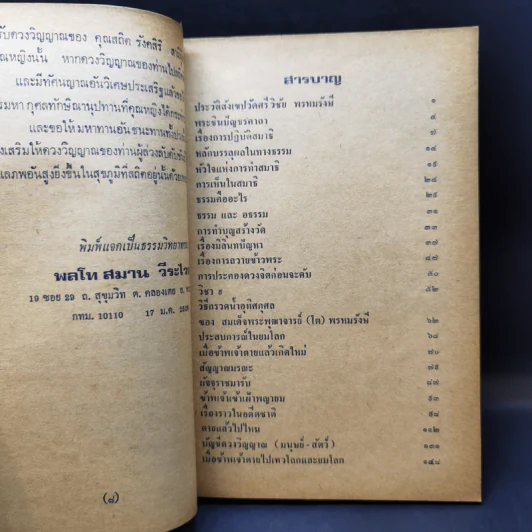 รับดวงวิญญาณของ คุณสถิต รังคสิริ
ณหญิงนั้น หากดวงวิญญาณของท่าน
และมีทัศนญาณอันวิเศษประเสริฐแล้ว
รมหา กุศลทักษิณานุปทานที่คุณหญิงได้
และขอให้ มหาทานอันชนะทานทั้งปวง
งเสริมให้ดวงวิญญาณของท่านผู้ล่วงลับ
เลภพอันสูงยิ่งขึ้นในสุขภูมิที่สถิตอยู่นั้นด้วย
พิมพ์แจกเป็นธรรมวิทยาทาน
พลโท สมาน วีระไวทยะ
19 ซอย 29 ถ. สุขุมวิท ต. คลองเตย
กทม. 10110 17 ม.ค.
(๘)
สารบาญ
ประวัติสังเขปวัดศรีวิชัย พรหมรังษี ๑
พระชินบัญชรคาถา ๕
เรื่องการปฏิบัติสมาธิ
หลักบรรลุผลในทางธรรม ๑๔
หัวใจแห่งการทำสมาธิ ๑๕
การเห็นในสมาธิ ๒๔
ธรรมคืออะไร
ธรรม และ อธรรม ๓๑
การทำบุญสร้างวัด
เรื่องมิลินทปัญหา
เรื่องการถวายข้าวพระ
การประคองดวงจิตก่อนจะดับ ๕๐
วิชา ๘ ๕๒
วิธีกรวดน้ำอุทิศกุศล
ของ สมเด็จพระพุฒาจารย์ (โต) พรหมรังษี ๖๒
ประสบการณ์ในยมโลก ๖๘
เมื่อข้าพเจ้าตายแล้วเกิดใหม่ ๗๐
สัญญาณมรณะ ๗๕
มัจจุราชมารับ
ข้าพเจ้าเข้าเฝ้าพญายม
เรื่องราวในอดีตชาติ
ตายแล้วไปไหน ๑๑๒
บัญชีดวงวิญญาณ (มนุษย์ - สัตว์) ๑๓๑
เมื่อข้าพเจ้าตายไปเทวโลกและยมโลก ๑๔๘